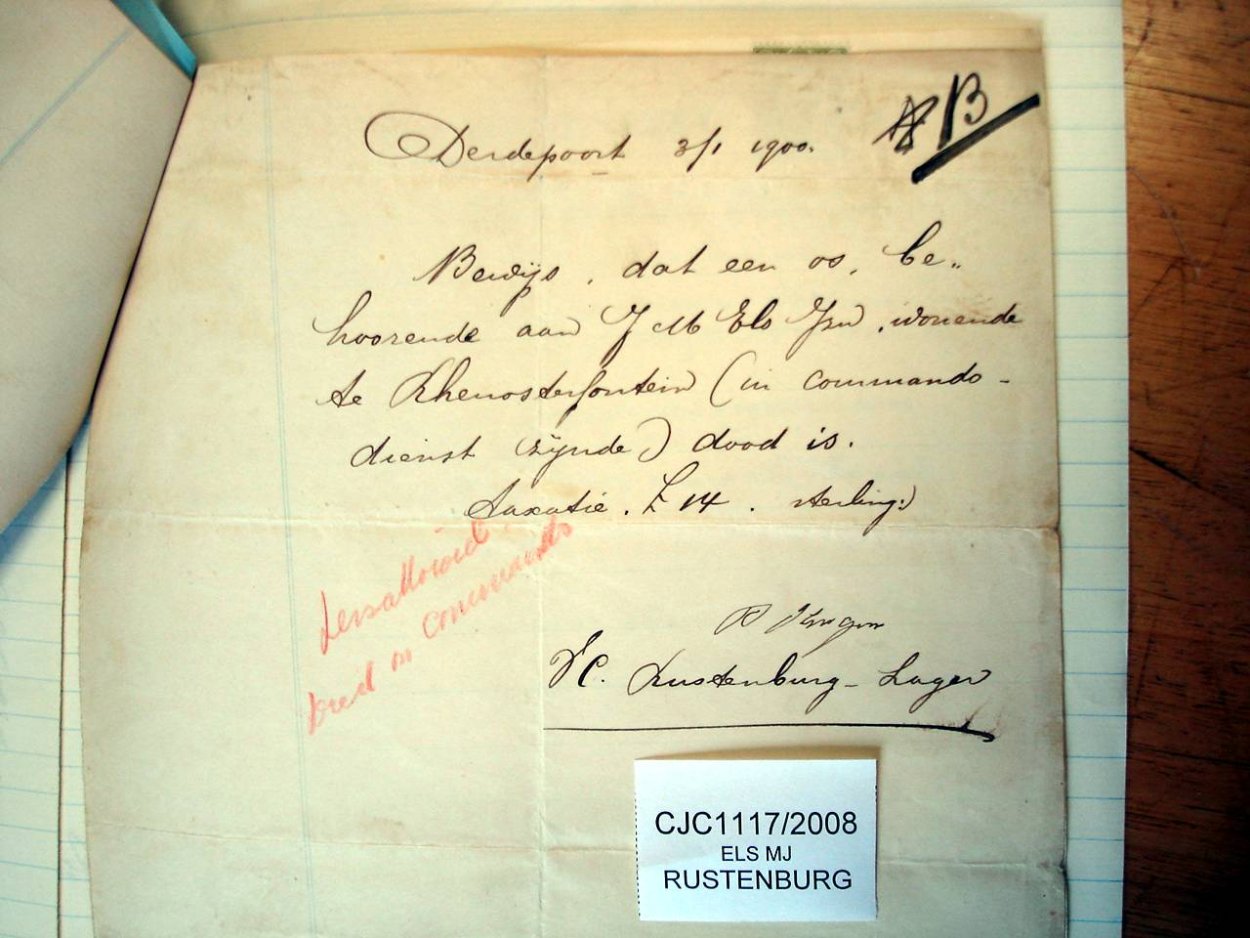 B
Derdepoort 3/1 1900.
Bewijs, dat een os, be„
hoorende aan J M Els Jzn, wonende
te Rhenosterfontein (in commando-
dienst zijnde) dood is.
Taxatie. £ 14. sterling.
Died on commando
VC. Rustenburg-Lager
CJC1117/2008
ELS MJ
RUSTENBURG